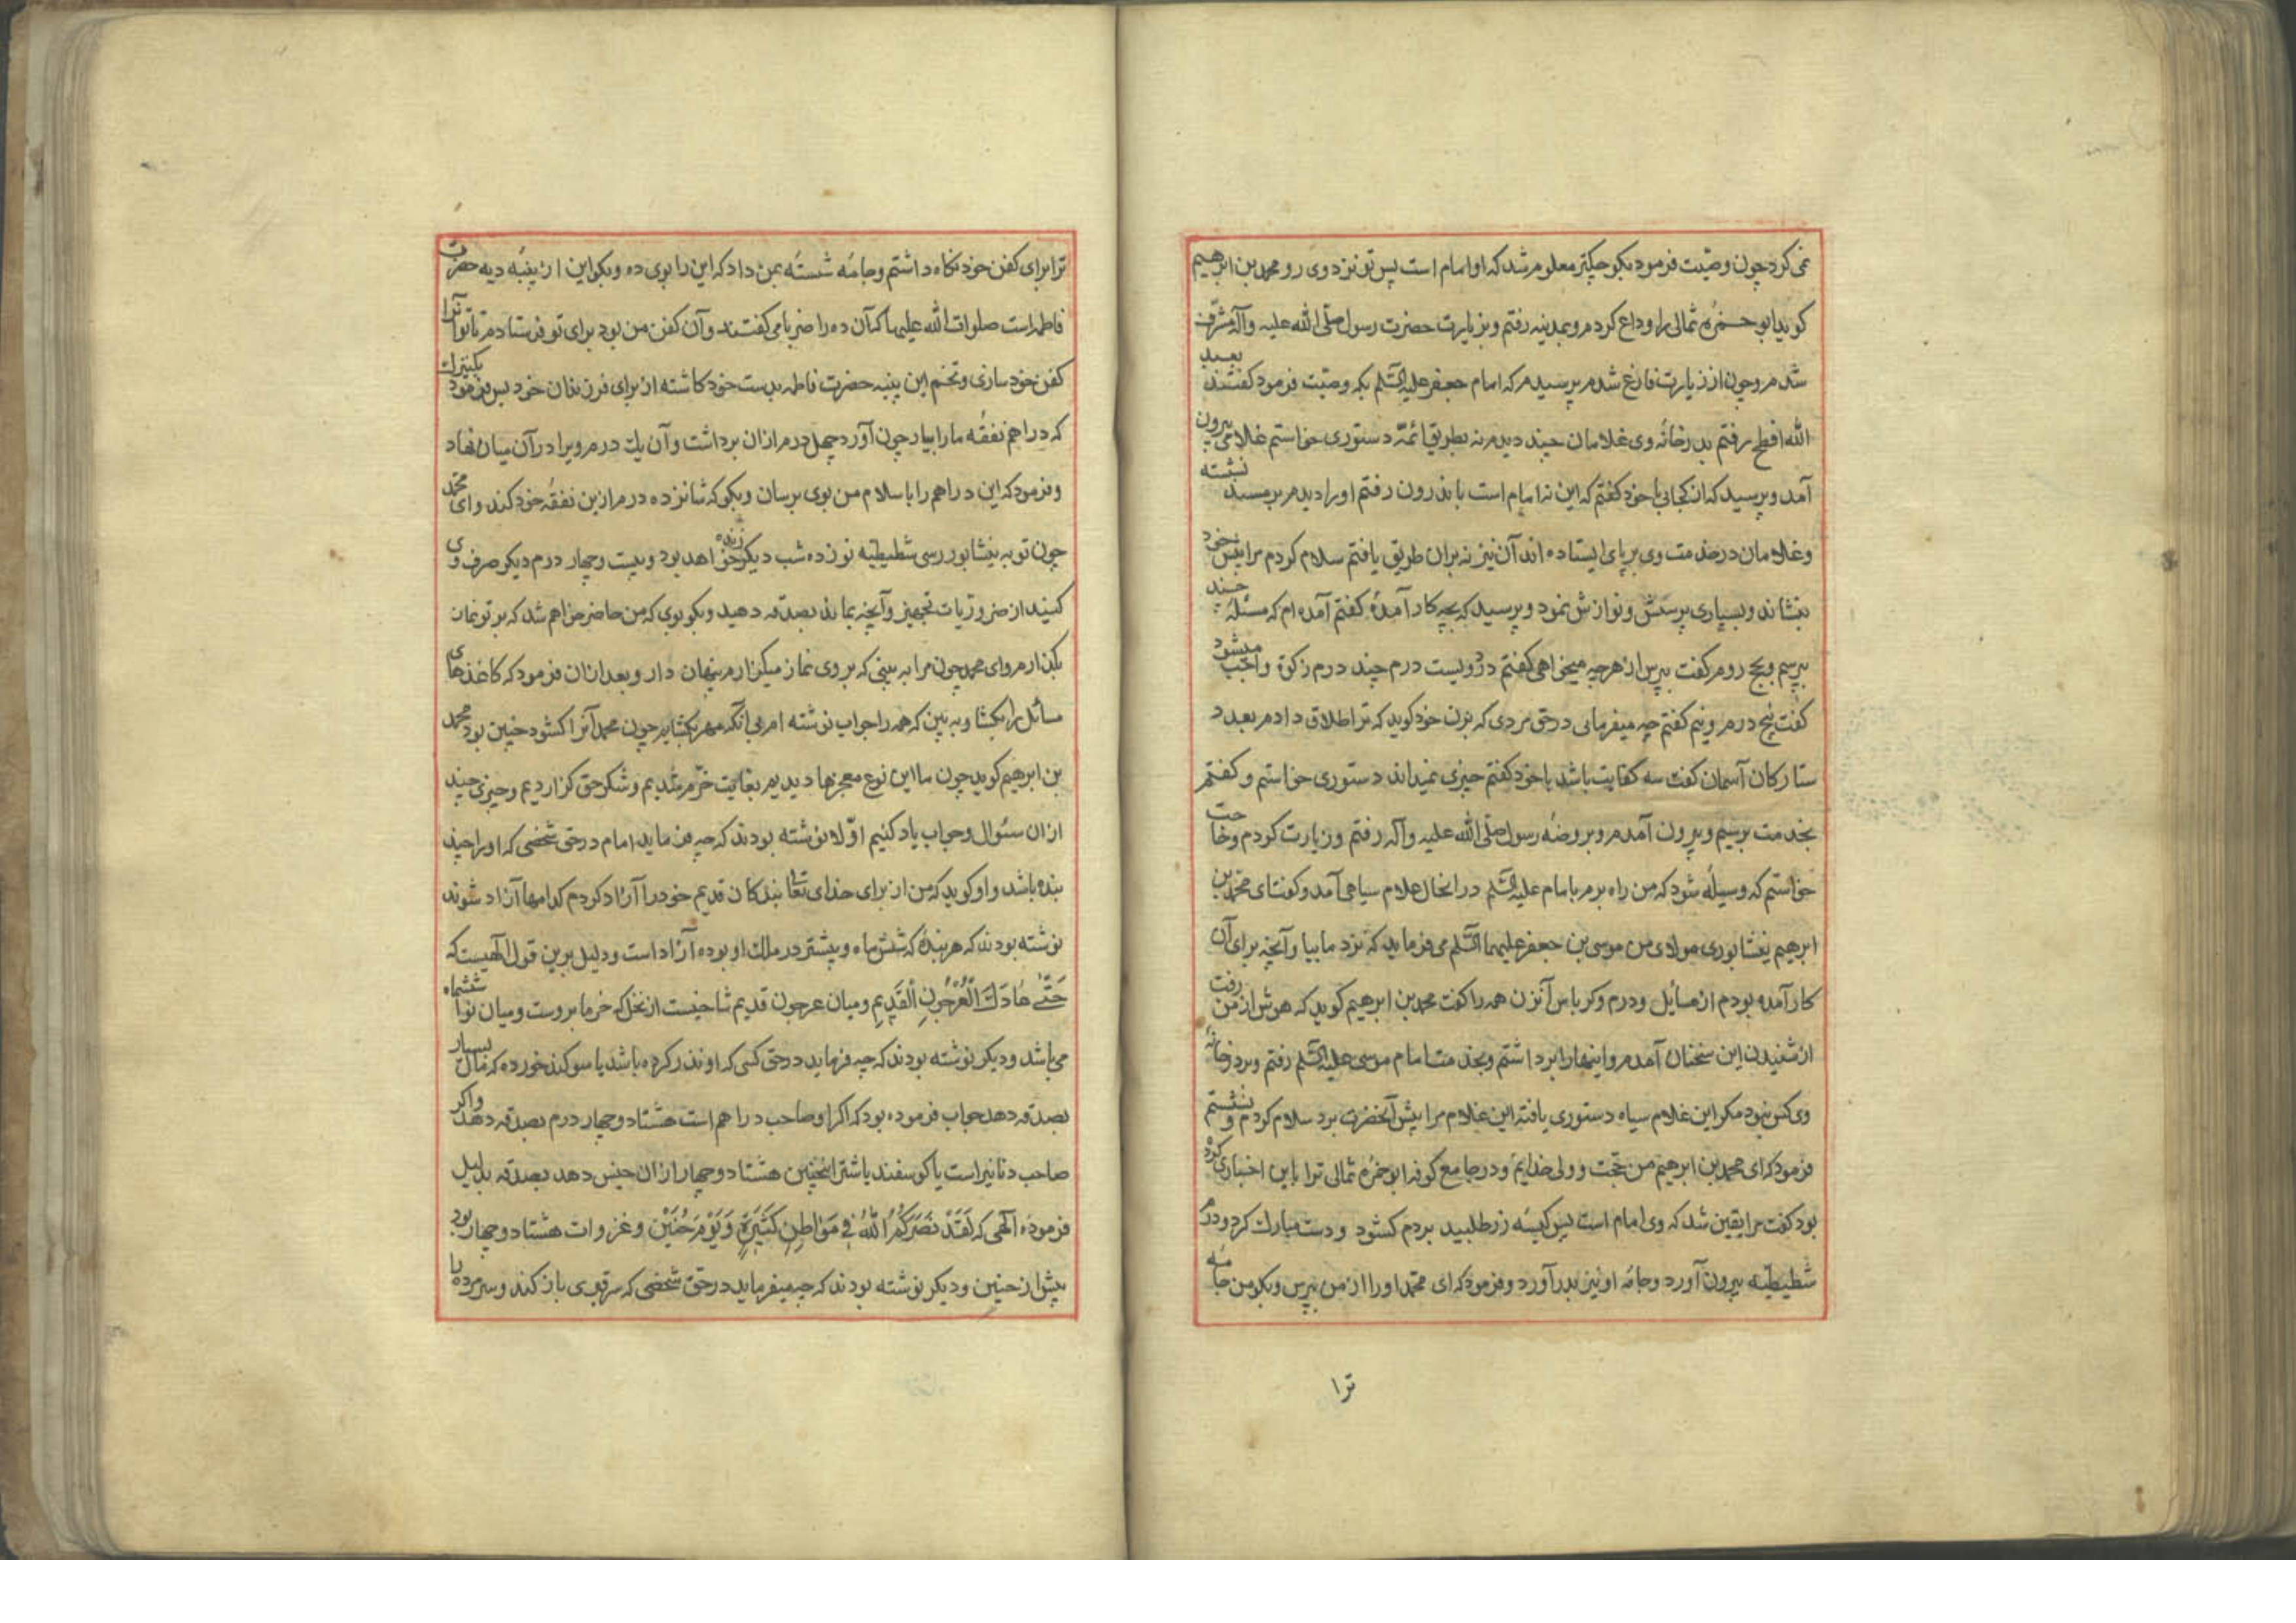 نمی کرد چون وصیّت فرمود بکوچکتر معلوم شد که او امام است پس تو نزد وی رو محمد بن ابرهیم
کوید ابو حمزه ثمالی را وداع کردم و بمدینه رفتم و بزیارت حضرت رسول صلّی الله علیه وآله مشرّف
شدم و چون از زیارت فارغ شدم پرسیدم که امام جعفر علیه السّلم بکه وصیّت فرمود کفتند بعبد
الله افطح رفتم بدر خانه وی غلامان چند دیدم نه بطریق ائمّه دستوری خواستم غلامی بیرون
آمد و پرسید که از کجایی با خود کفتم که این نه امام است باندرون رفتم او را دیدم بر مسند نشسته
وغلامان در خدمت وی بر پای ایستاده اند آن نیز نه بران طریق یافتم سلام کردم مرا پیش خود
بنشاند و بسیاری پرسش و نوازش نمود و پرسید که بچه کار آمدۀ کفتم آمده ام که مسئلۀ چند
بپرسم و بحج روم کفت بپرس از هرچه میخواهی کفتم در دویست درم چند درم زکوة واجب میشود
کفت پنج درم و نیم کفتم چه میفرمایی در حق مردی که بزن خود کوید که ترا طلاق دادم بعدد
ستارکان آسمان کفت سه کفایت باشد با خود کفتم چیزی نمیداند دستوری خواستم و کفتم
بخدمت برسیم و بیرون آمدم و بروضه رسول صلّی الله علیه وآله رفتم و زیارت کردم و حاجت
خواستم که وسیلۀ شود که من راه برم بامام علیه السّلم در انحال غلام سیاهی آمد و کفت ای محمّد بن
ابرهیم نیشابوری مولای من موسی بن جعفر علیهما السّلم می فرماید که نزد ما بیا و آنچه برای آن
کار آمده بودم از مسایل و درم و کرباس آنزن همه را کفت محمد بن ابرهیم کوید که هوش از من رفت
از شنیدن این سخنان آمدم و اینها را برداشتم و بخدمت امام موسی علیه السّلم رفتم و بر در خانه
وی کس نبود مکر این غلام سیاه دستوری یافته این غلام مرا پیش آنحضرت برد سلام کردم و نشستم
فرمود که ای محمد بن ابرهیم من حجّت و ولی خدایم و در جامع کوفه ابو حمزه ثمالی ترا باین اخباری کرد
بود کفت مرا یقین شد که وی امام است پس کیسه زر طلبید بردم کشود و دست مبارک کرد و درم
شطیطیّه بیرون آورد و جامه او نیز بدر آورد و فرمود که ای محمّد او را از من بپرس و بکو من جامه
ترا
ترا برای کفن خود نکاه داشتم و جامۀ شسته بمن داد که این را بوی ده و بکو این از پنبه دیه حضرت
فاطمه است صلوات الله علیها که آن ده را ضربا می کفتند و آن کفن من بود برای تو فرستادم تا تو آنرا
کفن خود سازی و تخم این پنبه حضرت فاطمه بدست خود کاشته از برای فرزندان خود پس فرمود بکنیزک
که دراهم نفقه ما را بیار چون آورد چهل درم ازان برداشت و آن یک درم ویرا در آن میان نهاد
و فرمود که این دراهم را با سلام من بوی برسان و بکو که شانزده درم ازین نفقه خود کند و ای محمّد
چون تو به نیشابور رسی شطیطیه نوزده شب دیکر زنده خواهد بود و بیست و چهار درم دیکر صرف وی
کنید از ضروریات تجهیز و آنچه بماند بصدقه دهید و بکو بوی که من حاضر خواهم شد که بر تو نماز
بکذارم و ای محمد چون مرا به بینی که بر وی نماز میکزارم پنهان دار و بعد ازان فرمود که کاغذهای
مسائل را بکشا و به بین که همه را جواب نوشته ام بی آنکه مهر بکشاید چون محمد آنرا کشود چنین بود محمد
بن ابرهیم کوید چون ما این نوع معجزها دیدیم بغایت خرّم شدیم و شکر حق کزاردیم و چیزی چند
ازان سئوال و جواب یاد کنیم اوّلا نوشته بودند که چه فرماید امام در حق شخصی که او را چند
بنده باشد و او کوید که من از برای خدای تعالی بندکان قدیم خود را آزاد کردم کدامها آزاد شوند
نوشته بودند که هر بندۀ که شش ماه و بیشتر در ملک او بوده آزاد است و دلیل برین قول الهیست که
حَتّٰی عَادَ كَالْعُرْجُونِ الْقَدِيمِ و میان عرجون قدیم شاخیست از نخل که خرما بروست و میان نو تا ششماه
می باشد و دیکر نوشته بودند که چه فرماید در حق کسی که او نذر کرده باشد یا سوکند خورده که مال بسیار
بصدقه دهد جواب فرموده بود که اکر او صاحب دراهم است هشتاد و چهار درم بصدقه دهد و اکر
صاحب دنانیر است یا کوسفند یا شتر اینچنین هشتاد و چهار ازان جنس دهد بصدقه بدلیل
فرموده الهی که لَقَدْ نَصَرَكُمُ اللّٰهُ فِي مَوَاطِنَ كَثِيرَةٍ وَيَوْمَ حُنَيْنٍ و غزوات هشتاد و چهار بود
پیش از حنین و دیکر نوشته بودند که چه میفرماید در حق شخصی که سر قبوری باز کند و سر مرده را